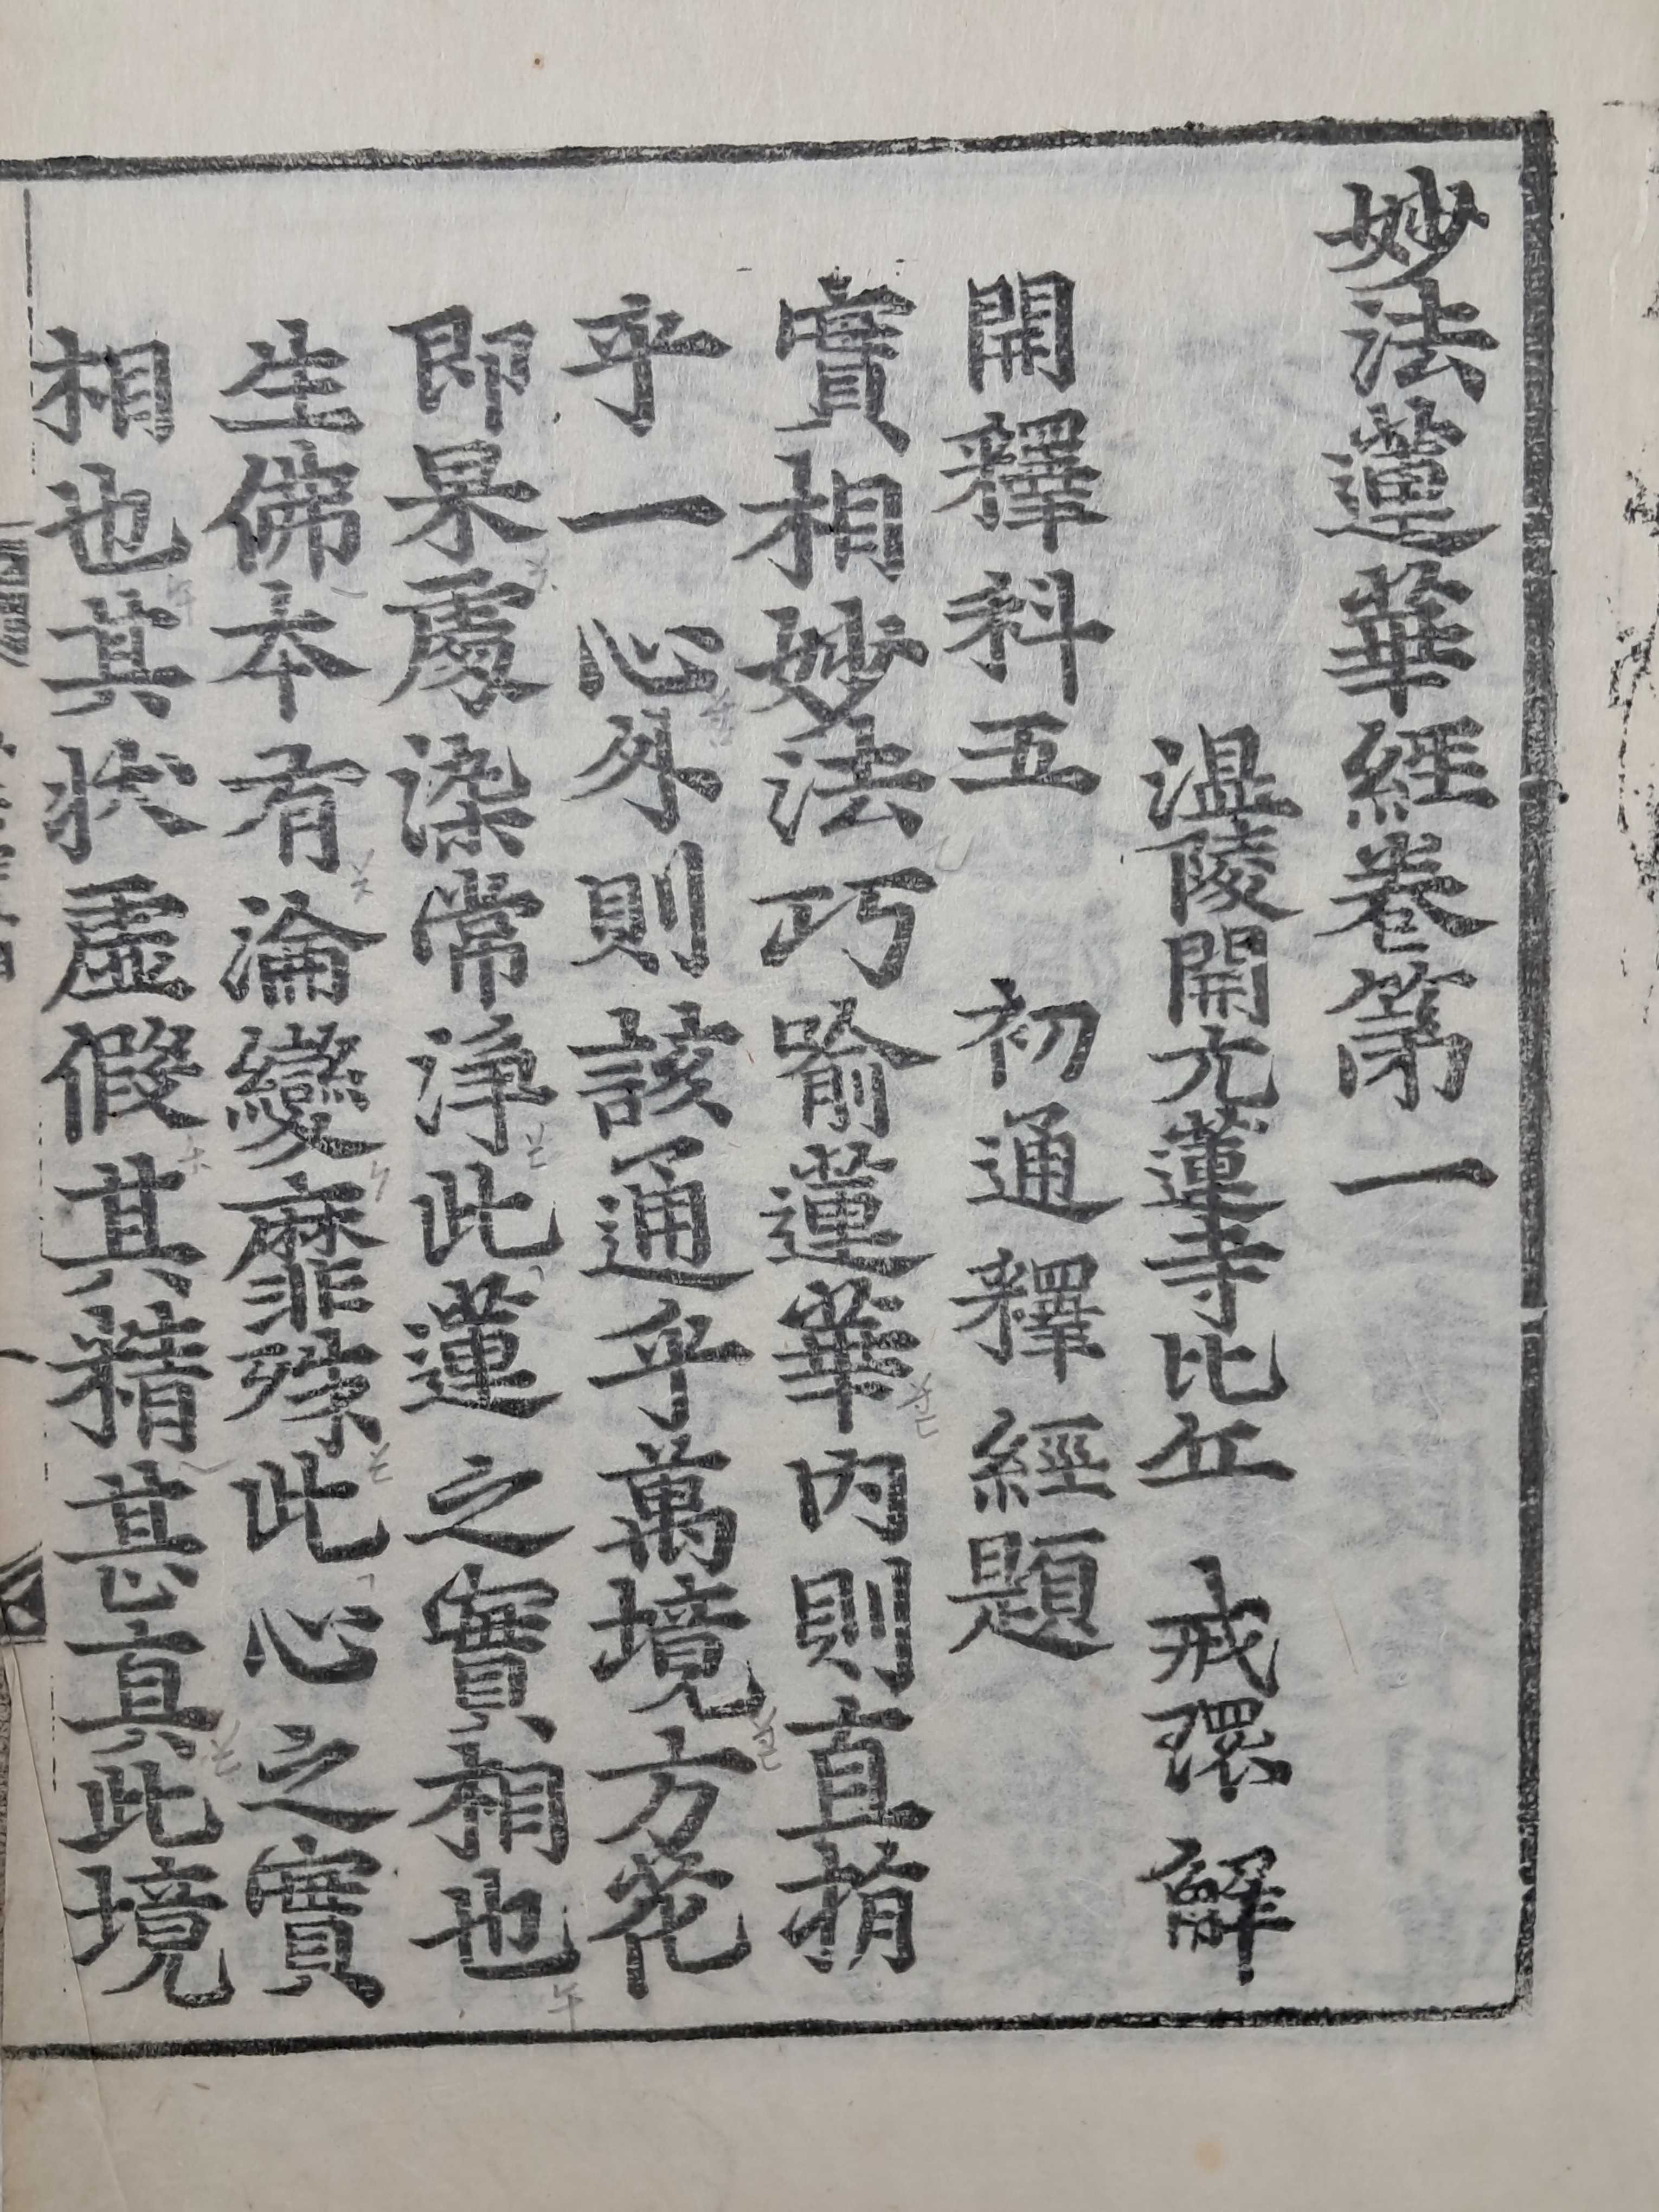 妙法蓮華經卷第一
溫陵開元蓮寺比丘 戒環 解
開釋科五 初通釋經題
實相妙法巧喻蓮華內則直指
乎一心外則該通乎萬境方花
即果處染常淨此蓮之實相也
生佛本有淪變靡殊此心之實
相也其狀虛假其精甚真此境